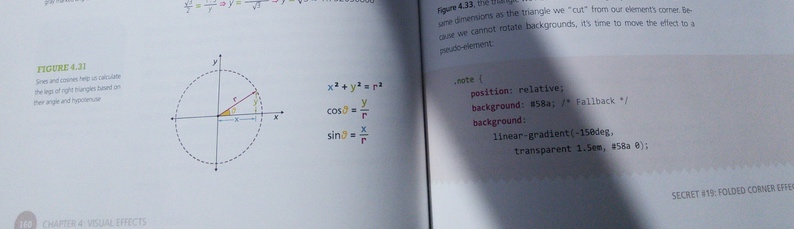 FIGURE 4.31
Sines and cosines help us calculate
the legs of right triangles based on
their angle and hypotenuse
y
r
x
x
x² + y² = r²
cosθ = y/r
sinθ = x/r
160 CHAPTER 4: VISUAL EFFECTS
Figure 4.33, the triangle
same dimensions as the triangle we "cut" from our element's corner. Be-
cause we cannot rotate backgrounds, it's time to move the effect to a
pseudo-element:
.note {
position: relative;
background: #58a; /* Fallback */
background:
linear-gradient(-150deg,
transparent 1.5em, #58a 0);
SECRET #19: FOLDED CORNER EFFE